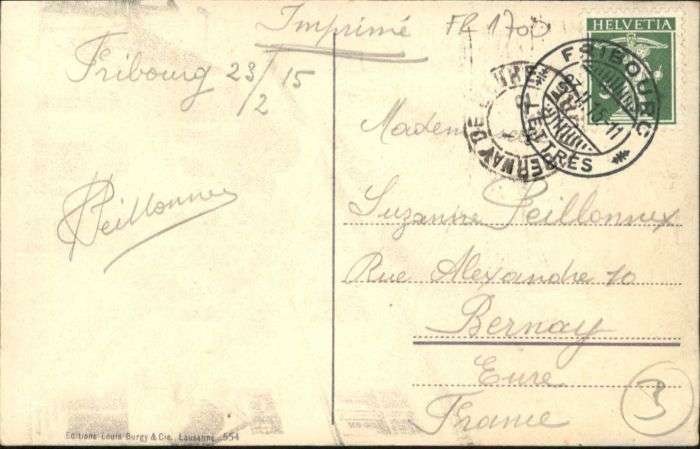 Imprimé
FR 1700
HELVETIA
Fribourg 23/2 15
FRIBOURG
LETTRES
BERNAY DE L'EURE
Mademoiselle
Suzanne Peillonnex
Peillonnex
Rue Alexandre 10
Bernay
Eure
France
3
Editions Louis Burgy & Cie, Lausanne. 554